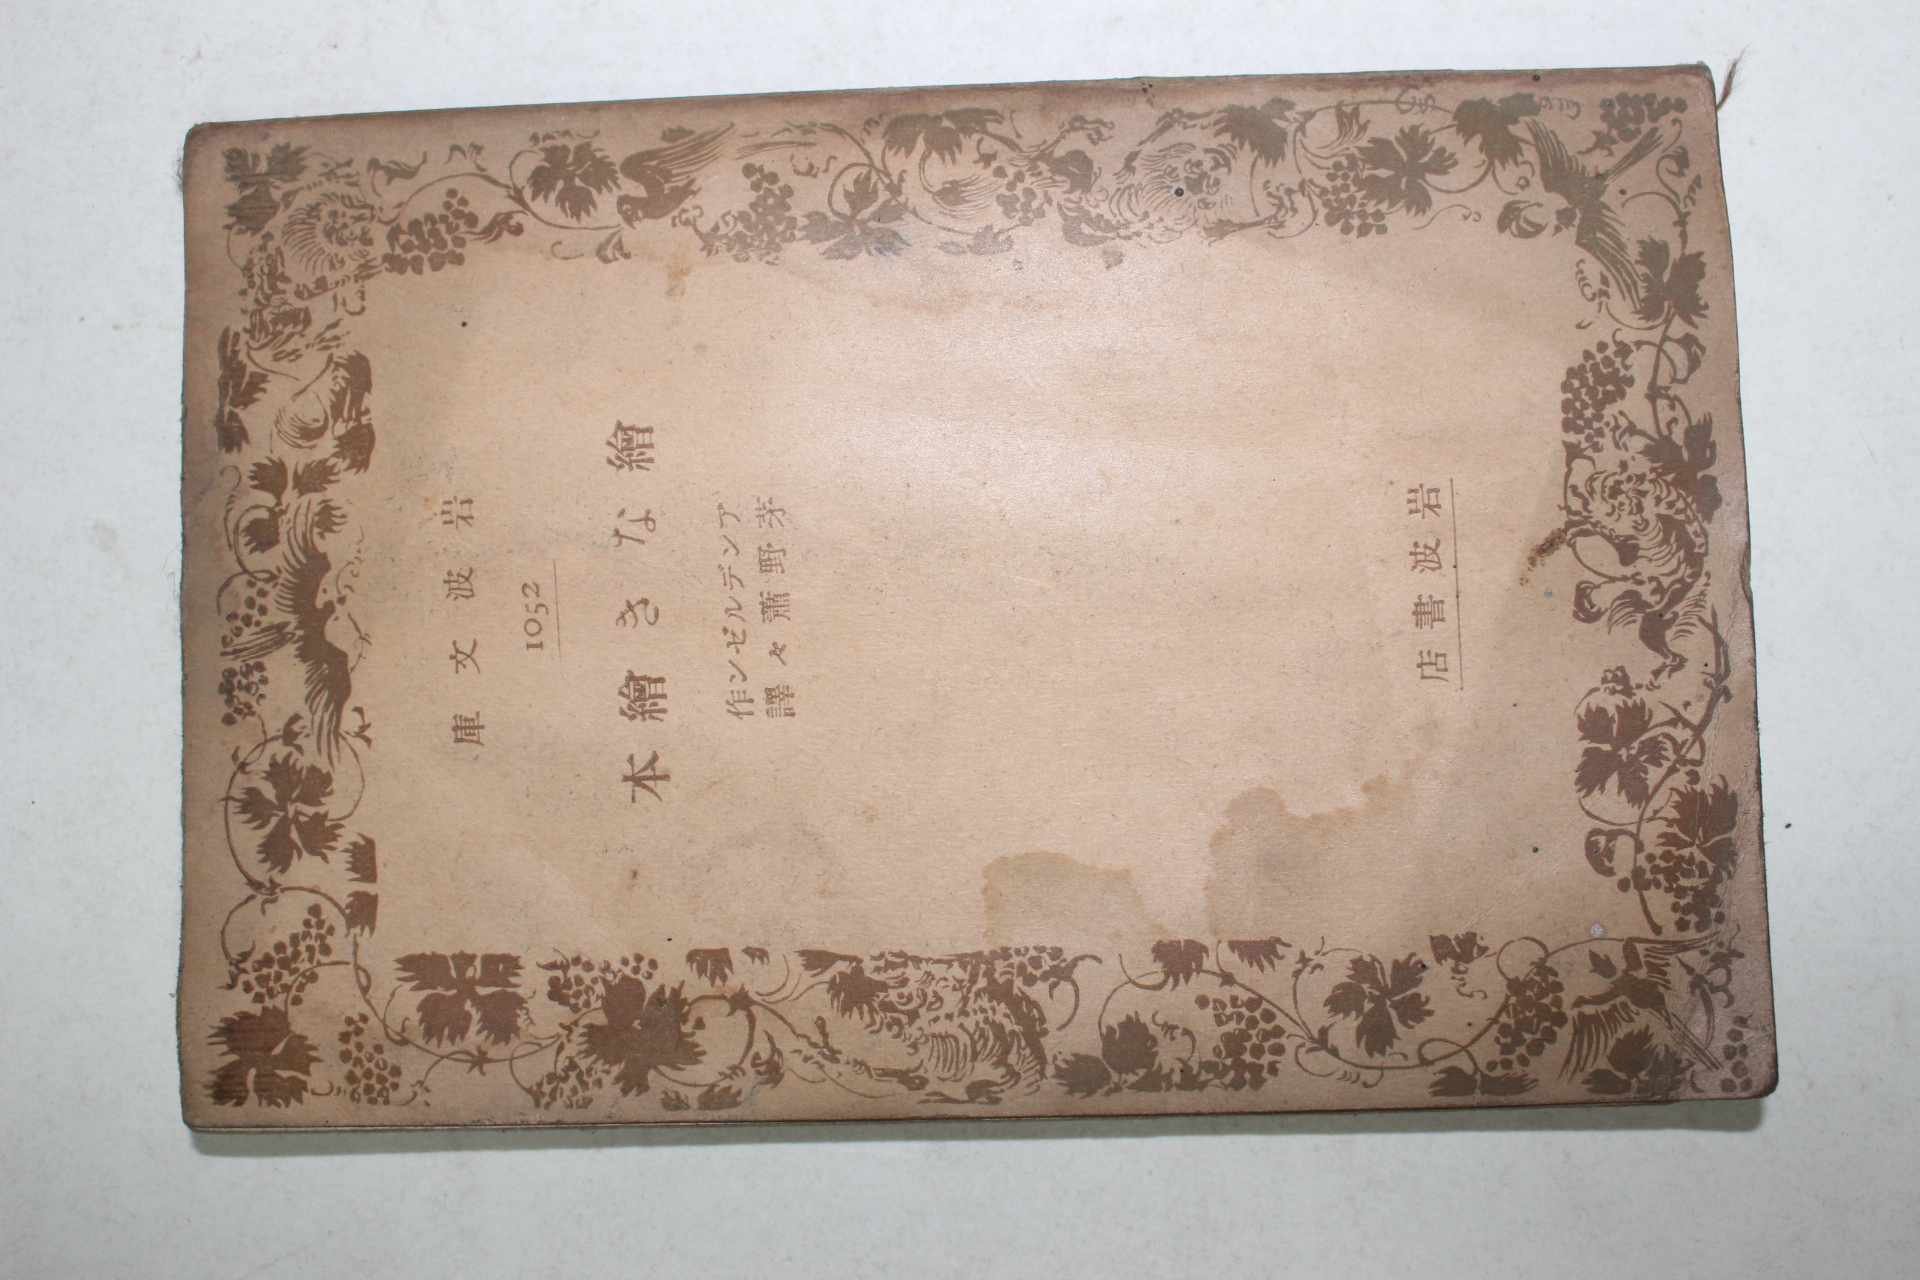 岩波文庫
1052
繪なき繪本
アンデルゼン作
茅野蕭々譯
岩波書店